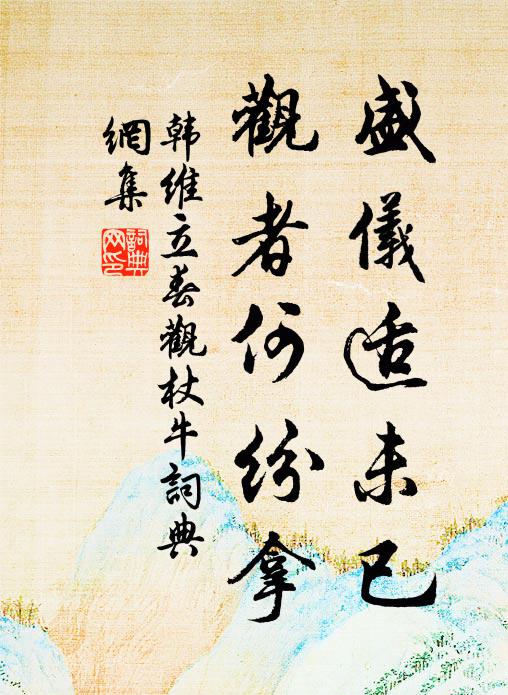 盛儀适未已
觀者何紛拿
韩維立春觀杖牛詞典
網集
詞典
网印